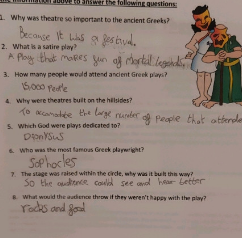 the information above to answer the following questions:
1. Why was theatre so important to the ancient Greeks?
Because it was a festival.
2. What is a satire play?
A Play that makes fun of Mortal Legends
3. How many people would attend ancient Greek plays?
15000 People
4. Why were theatres built on the hillsides?
To accomodate the large number of people that attende
5. Which God were plays dedicated to?
Dionysus
6. Who was the most famous Greek playwright?
Sophocles
7. The stage was raised within the circle, why was it built this way?
So the audience could see and hear better
8. What would the audience throw if they weren't happy with the play?
rocks and food